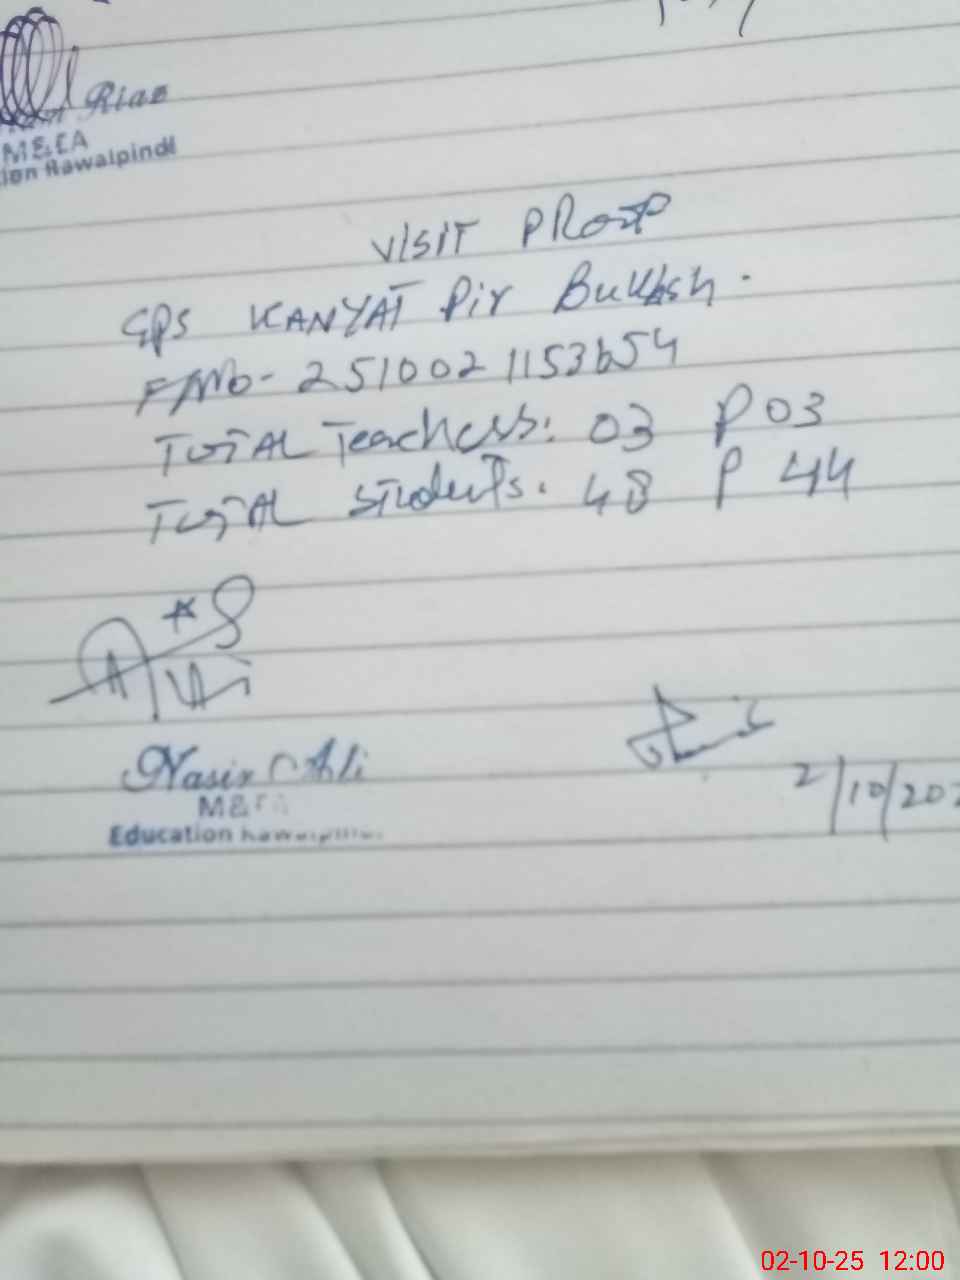 Riaz
M&EA
Rawalpindi
VISIT PROOF
GPS KANYAT Pir Bukhsh.
F/No- 2510021153654
TOTAL Teachers: 03 P 03
TOTAL Students. 48 P 44
Nasir Ali
M&EA
Education
2/10/202
02-10-25 12:00